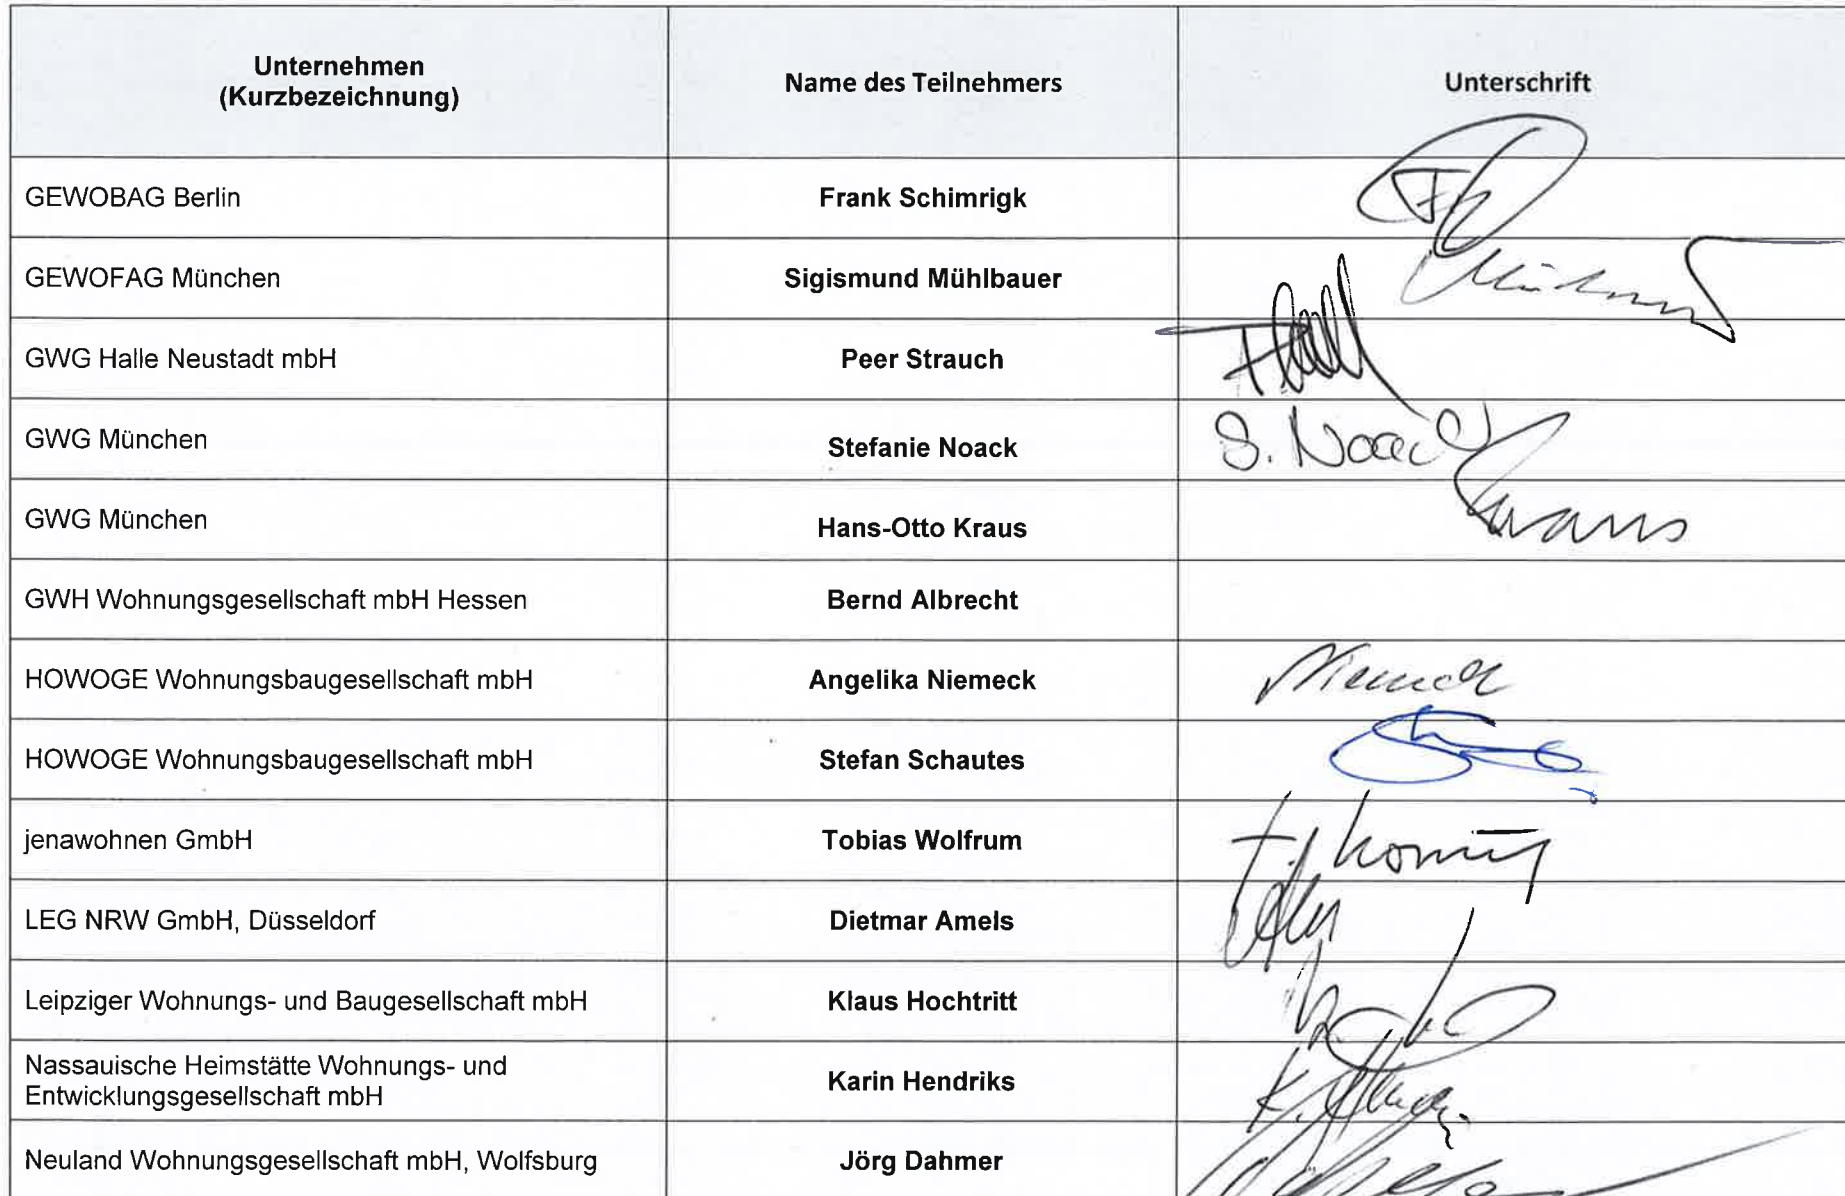 Unternehmen
(Kurzbezeichnung)
Name des Teilnehmers
Unterschrift
GEWOBAG Berlin
Frank Schimrigk
GEWOFAG München
Sigismund Mühlbauer
GWG Halle Neustadt mbH
Peer Strauch
GWG München
Stefanie Noack
S. Noack
GWG München
Hans-Otto Kraus
Kraus
GWH Wohnungsgesellschaft mbH Hessen
Bernd Albrecht
HOWOGE Wohnungsbaugesellschaft mbH
Angelika Niemeck
Niemeck
HOWOGE Wohnungsbaugesellschaft mbH
Stefan Schautes
jenawohnen GmbH
Tobias Wolfrum
LEG NRW GmbH, Düsseldorf
Dietmar Amels
Leipziger Wohnungs- und Baugesellschaft mbH
Klaus Hochtritt
Nassauische Heimstätte Wohnungs- und
Entwicklungsgesellschaft mbH
Karin Hendriks
Neuland Wohnungsgesellschaft mbH, Wolfsburg
Jörg Dahmer